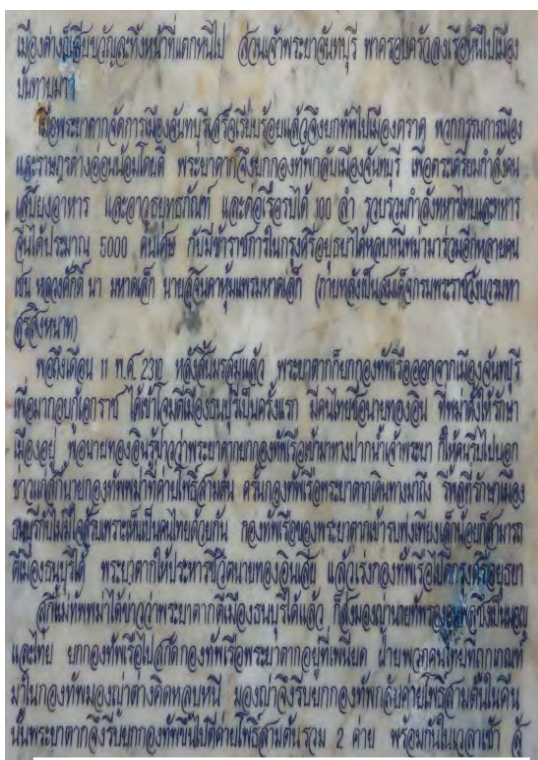 เมืองต่างก็เสียขวัญละทิ้งหน้าที่แตกหนีไป ส่วนเจ้าพระยาจันทบุรี พาครอบครัวลงเรือหนีไปเมือง
บันทายมาศ
เมื่อพระยาตากจัดการเมืองจันทบุรีเสร็จเรียบร้อยแล้วจึงยกทัพไปเมืองตราด พวกกรมการเมือง
และราษฎรต่างอ่อนน้อมโดยดี พระยาตากจึงยกกองทัพกลับเมืองจันทบุรี เพื่อตระเตรียมกำลังคน
เสบียงอาหาร และอาวุธยุทธภัณฑ์ และต่อเรือรบได้ 100 ลำ รวบรวมกำลังทหารไทยและทหาร
จีนได้ประมาณ 5000 คนเศษ กับมีข้าราชการในกรุงศรีอยุธยาได้หลบหนีพม่ามาร่วมอีกหลายคน
เช่น หลวงศักดิ์ นา มหาดเล็ก นายสุจินดาหุ้มแพรมหาดเล็ก (ภายหลังเป็นสมเด็จกรมพระราชวังบวรมหา
สุรสิงหนาท)
พอถึงเดือน 11 พ.ศ. 2310 หลังสิ้นมรสุมแล้ว พระยาตากก็ยกกองทัพเรือออกจากเมืองจันทบุรี
เพื่อมากอบกู้เอกราช ได้เข้าโจมตีเมืองธนบุรีเป็นครั้งแรก มีคนไทยชื่อนายทองอิน ที่พม่าตั้งให้รักษา
เมืองอยู่ พอนายทองอินรู้ข่าวว่าพระยาตากยกกองทัพเรือเข้ามาทางปากน้ำเจ้าพระยา ก็ให้คนรีบไปบอก
ข่าวแก่สุกี้นายกองทัพพม่าที่ค่ายโพธิ์สามต้น ครั้นกองทัพเรือพระยาตากเดินทางมาถึง รี้พลที่รักษาเมือง
ธนบุรีกับไม่มีใจสู้รบเพราะเห็นเป็นคนไทยด้วยกัน กองทัพเรือของพระยาตากเข้ารบพุ่งเพียงเล็กน้อยก็สามารถ
ตีเมืองธนบุรีได้ พระยาตากให้ประหารชีวิตนายทองอินเสีย แล้วเร่งกองทัพเรือไปตีกรุงศรีอยุธยา
สุกี้แม่ทัพพม่าได้ข่าวว่าพระยาตากตีเมืองธนบุรีได้แล้ว ก็ส่งมองญ่านายทัพรองคุมพลซึ่งเป็นมอญ
และไทย ยกกองทัพเรือไปสกัดกองทัพเรือพระยาตากอยู่ที่เพนียด ฝ่ายพวกคนไทยที่ถูกเกณฑ์
มาในกองทัพมองญ่าต่างคิดหลบหนี มองญ่าจึงรีบยกกองทัพกลับมาค่ายโพธิ์สามต้นในคืน
นั้นพระยาตากจึงรีบยกกองทัพขึ้นไปตีค่ายโพธิ์สามต้นรวม 2 ค่าย พร้อมกันในเวลาเช้า สู้